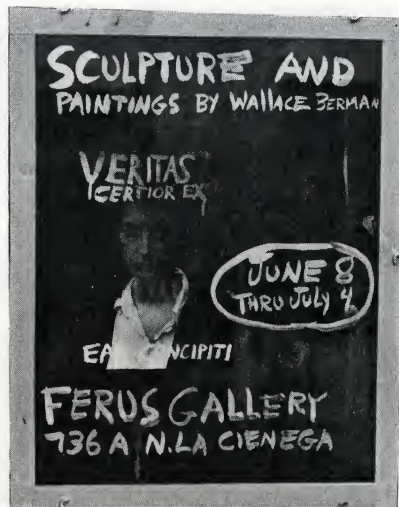 SCULPTURE AND
PAINTINGS BY WALLACE BERMAN
VERITAS
CERTIOR EX
JUNE 8
THRU JULY 4
EA NCIPITI
FERUS GALLERY
736 A N. LA CIENEGA